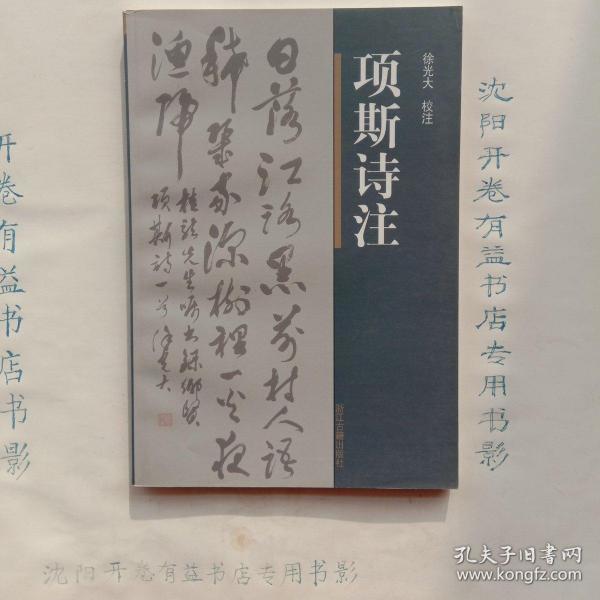 项斯诗注
徐光大 校注
浙江古籍出版社
日落江路黑前村人语
稀几家深树里一火夜
渔归
桂話先生嘱书録鄉賢
项斯詩一首 徐光大
沈阳开卷有益书店专用书影
开卷有益书店书影
沈阳开卷有益书店专用书影
孔夫子旧书网
www.kongfz.com